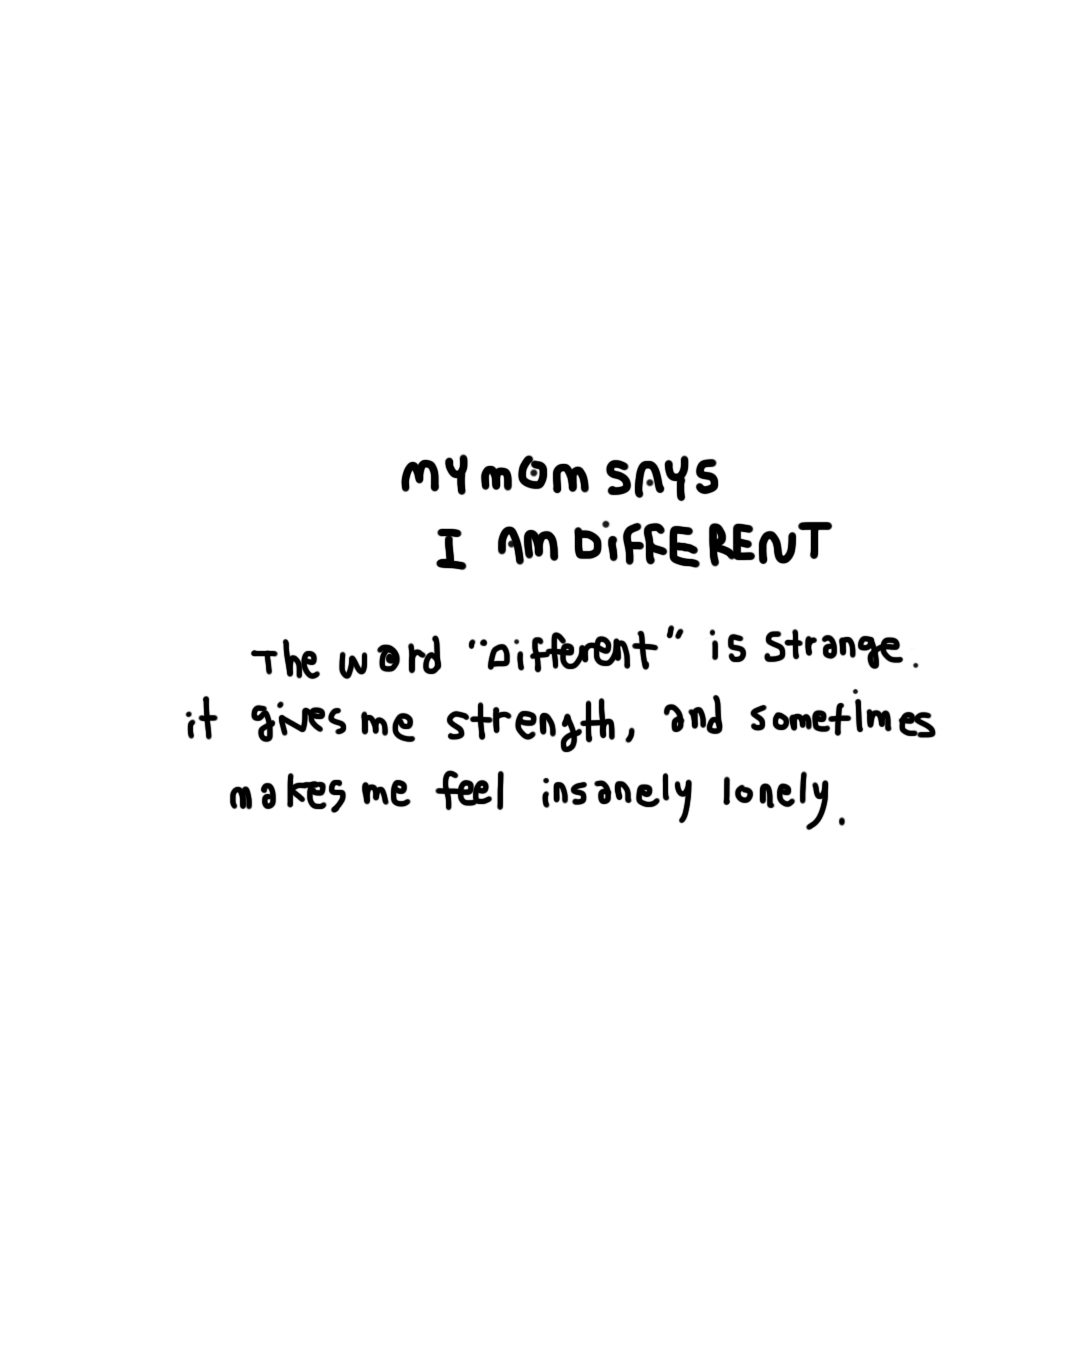 MY mOm SAYS
I AM DiFFERENT
The word "Different" is strange.
it gives me strength, and sometimes
makes me feel insanely lonely.